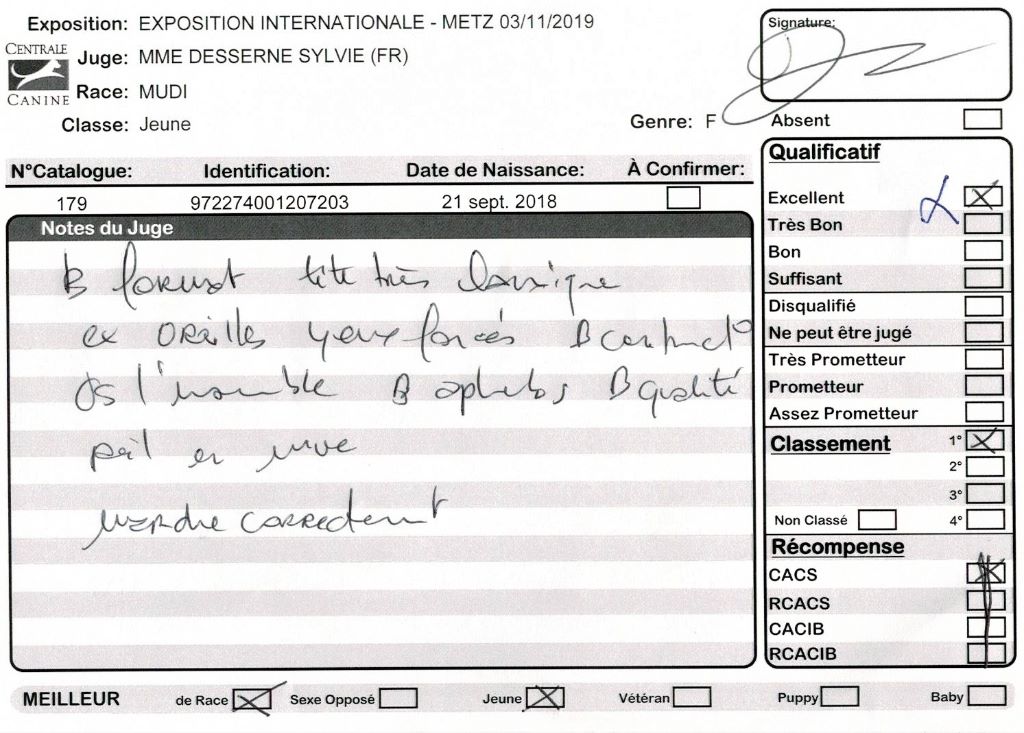 Exposition: EXPOSITION INTERNATIONALE - METZ 03/11/2019
CENTRALE CANINE
Juge: MME DESSERNE SYLVIE (FR)
Race: MUDI
Classe: Jeune
Genre: F
Signature:
Absent
N°Catalogue: Identification: Date de Naissance: À Confirmer:
179 972274001207203 21 sept. 2018
Notes du Juge
B format tête très classique
ex oreilles yeux foncés B
ds l'ensemble B aplombs B qualité
poil en
marche correctement
Qualificatif
Excellent
Très Bon
Bon
Suffisant
Disqualifié
Ne peut être jugé
Très Prometteur
Prometteur
Assez Prometteur
Classement 1°
2°
3°
Non Classé 4°
Récompense
CACS
RCACS
CACIB
RCACIB
MEILLEUR de Race Sexe Opposé Jeune Vétéran Puppy Baby